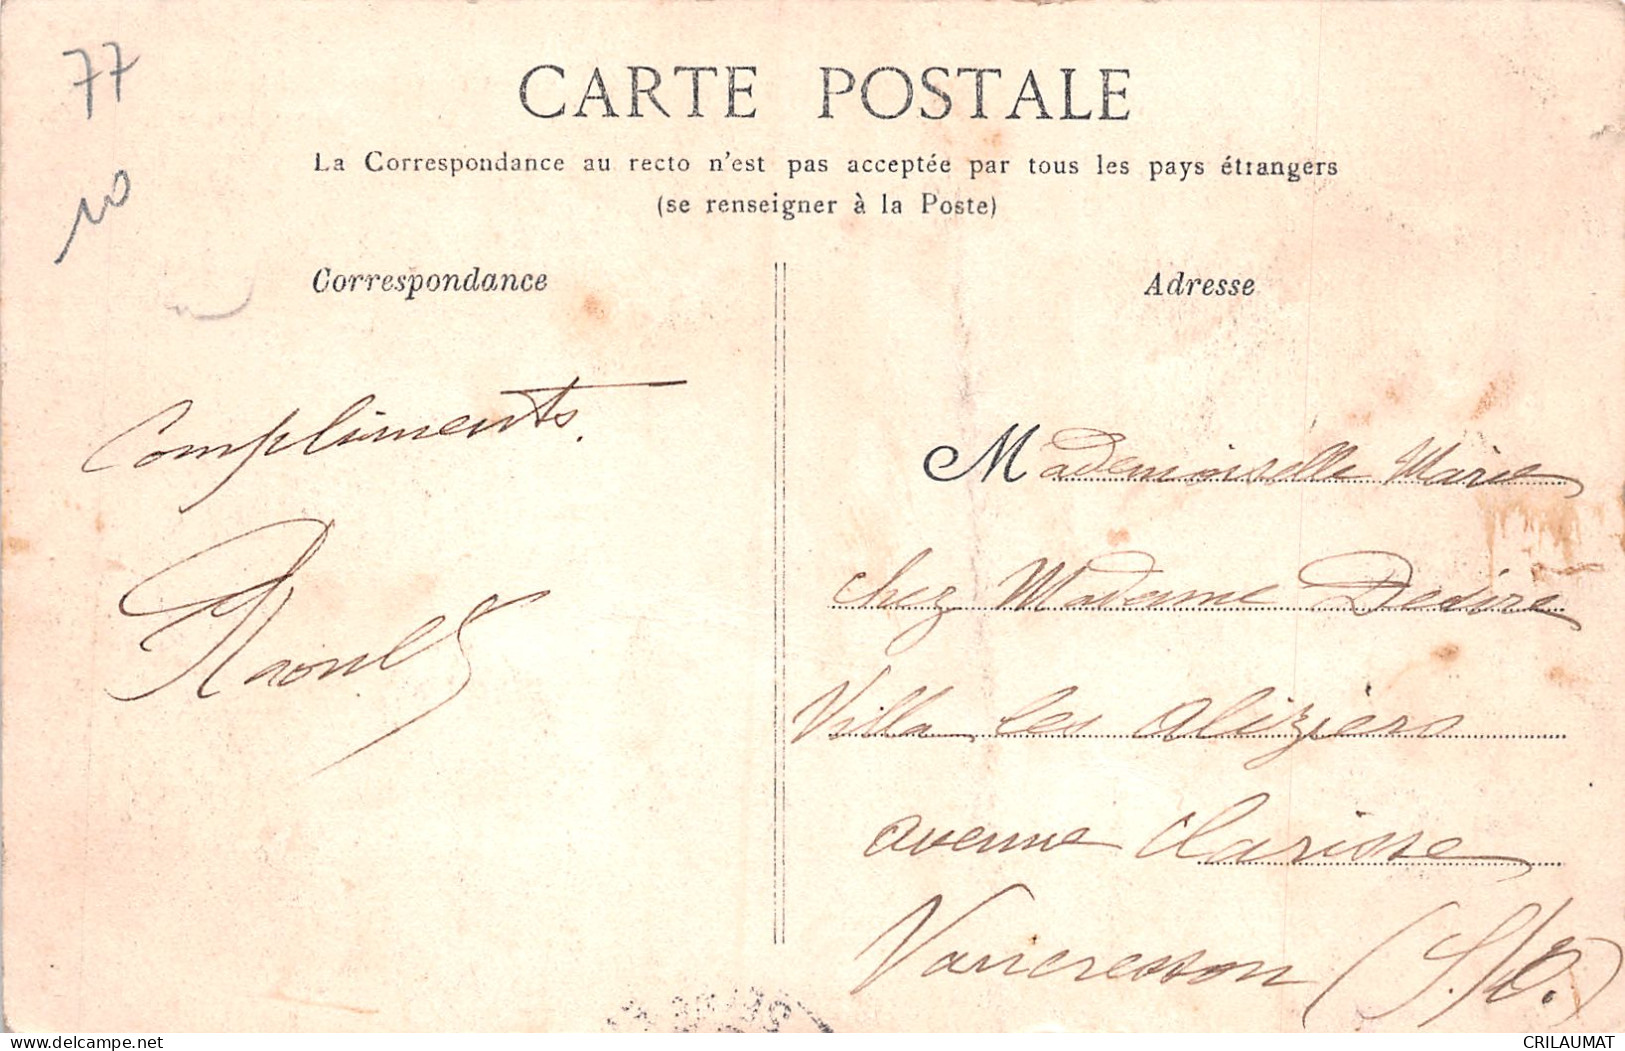 77
10
CARTE POSTALE
La Correspondance au recto n'est pas acceptée par tous les pays étrangers
(se renseigner à la Poste)
Correspondance
Compliments.
Raoul
Adresse
Mademoiselle Marie
chez Madame Desire
Villa les aliziers
avenue Clarisse
Vaucresson (S./O.)
CRILAUMAT